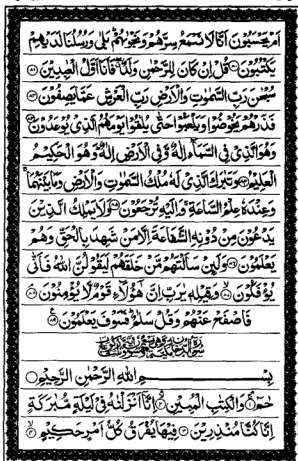 اَمْ يَحْسَبُوْنَ اَنَّا لَا نَسْمَعُ سِرَّهُمْ وَنَجْوٰىهُمْ بَلٰى وَرُسُلُنَا لَدَيْهِمْ
يَكْتُبُوْنَ ۝۸۰ قُلْ اِنْ كَانَ لِلرَّحْمٰنِ وَلَدٌ فَاَنَا اَوَّلُ الْعٰبِدِيْنَ ۝۸۱
سُبْحٰنَ رَبِّ السَّمٰوٰتِ وَالْاَرْضِ رَبِّ الْعَرْشِ عَمَّا يَصِفُوْنَ ۝۸۲
فَذَرْهُمْ يَخُوْضُوْا وَيَلْعَبُوْا حَتّٰى يُلٰقُوْا يَوْمَهُمُ الَّذِيْ يُوْعَدُوْنَ ۝۸۳
وَهُوَ الَّذِيْ فِي السَّمَآءِ اِلٰهٌ وَّفِي الْاَرْضِ اِلٰهٌ وَهُوَ الْحَكِيْمُ
الْعَلِيْمُ ۝۸۴ وَتَبٰرَكَ الَّذِيْ لَهٗ مُلْكُ السَّمٰوٰتِ وَالْاَرْضِ وَمَا بَيْنَهُمَا
وَعِنْدَهٗ عِلْمُ السَّاعَةِ وَاِلَيْهِ تُرْجَعُوْنَ ۝۸۵ وَلَا يَمْلِكُ الَّذِيْنَ
يَدْعُوْنَ مِنْ دُوْنِهِ الشَّفَاعَةَ اِلَّا مَنْ شَهِدَ بِالْحَقِّ وَهُمْ
يَعْلَمُوْنَ ۝۸۶ وَلَئِنْ سَاَلْتَهُمْ مَّنْ خَلَقَهُمْ لَيَقُوْلُنَّ اللّٰهُ فَاَنّٰى
يُؤْفَكُوْنَ ۝۸۷ وَقِيْلِهٖ يٰرَبِّ اِنَّ هٰٓؤُلَآءِ قَوْمٌ لَّا يُؤْمِنُوْنَ ۝۸۸
فَاصْفَحْ عَنْهُمْ وَقُلْ سَلٰمٌ فَسَوْفَ يَعْلَمُوْنَ ۝۸۹
بِسْمِ اللّٰهِ الرَّحْمٰنِ الرَّحِيْمِ
حٰمٓ ۝۱ وَالْكِتٰبِ الْمُبِيْنِ ۝۲ اِنَّآ اَنْزَلْنٰهُ فِيْ لَيْلَةٍ مُّبٰرَكَةٍ
اِنَّا كُنَّا مُنْذِرِيْنَ ۝۳ فِيْهَا يُفْرَقُ كُلُّ اَمْرٍ حَكِيْمٍ ۝۴